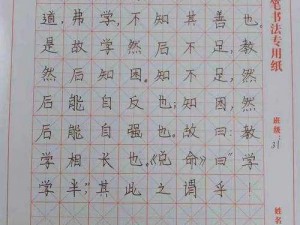 道,弗学,不知其善也。
是故学然后知不足,教
然后知困。知不足,然
后能自反也;知困,然
后能自强也。故曰:教
学相长也。《兑命》曰"学
学半",其此之谓乎!
笔书法专用纸
班级:
31
姓名